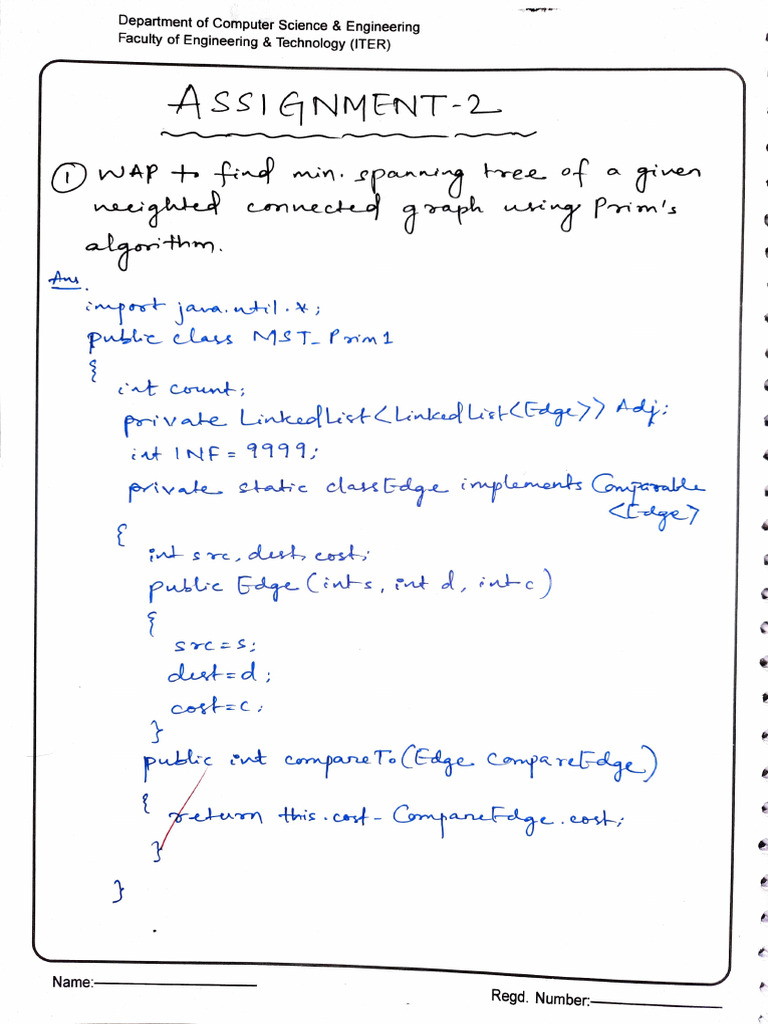 Department of Computer Science & Engineering
Faculty of Engineering & Technology (ITER)
ASSIGNMENT-2
① WAP to find min. spanning tree of a given
weighted connected graph using Prim's
algorithm.
Ans.
import java.util.*;
public class MST_Prim1
{
int count;
private LinkedList<LinkedList<Edge>> Adj;
int INF = 9999;
private static classEdge implements Comparable
<Edge>
{
int src, dest, cost;
public Edge (int s, int d, int c)
{
src=s;
dest=d;
cost=c;
}
public int compareTo(Edge CompareEdge)
{ return this.cost - CompareEdge.cost;
}
}
Name:
Regd. Number: